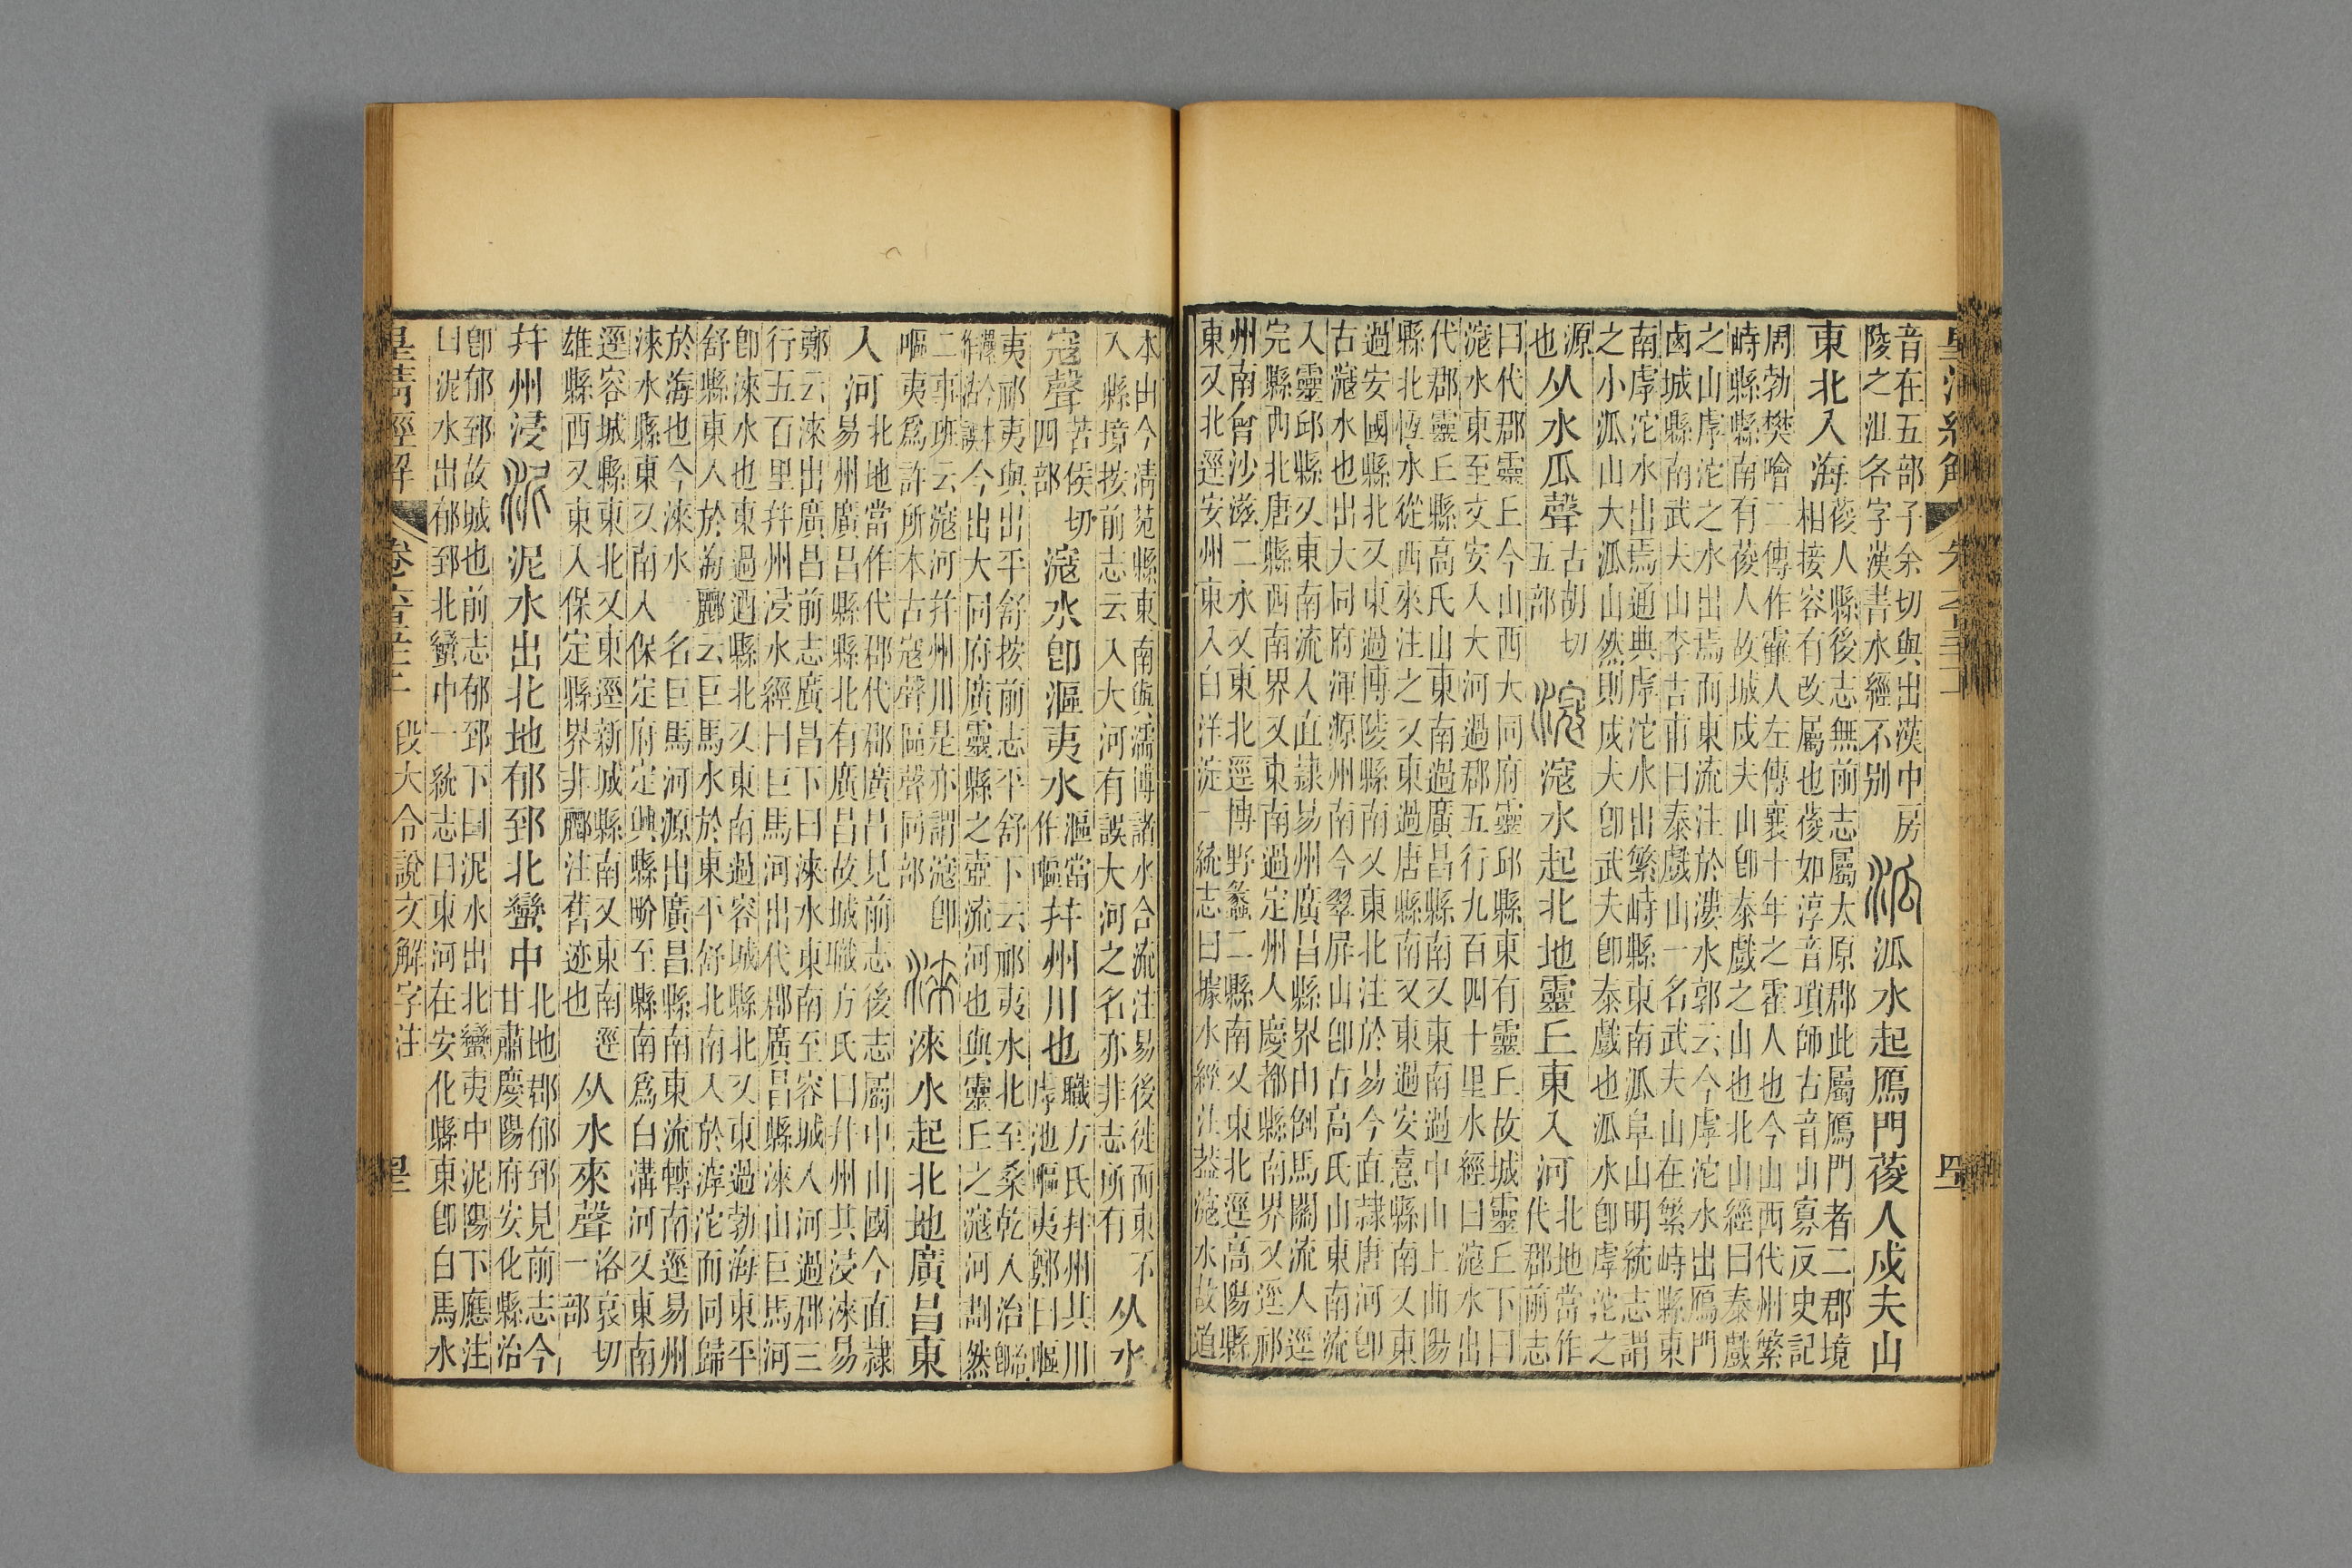 音在五部子余切與出漢中房
陵之沮各字漢書水經不别
泒水起鴈門葰人戍夫山
東北入海
葰人縣後志無前志屬太原郡此屬鴈門者二郡境
相接容有改屬也葰如淳音瑣師古音山寡反史記
周勃樊噲二傳作霍人左傳襄十年之霍人也今山西代州繁
峙縣縣南有葰人故城戍夫山卽泰戲之山也北山經曰泰戲
之山虖沱之水出焉而東流注於漊水郭云今虖沱水出鴈門
鹵城縣南武夫山李吉甫曰泰戲山一名武夫山在繁峙縣東
南虖沱水出焉通典虖沱水出繁峙縣東南泒阜山明統志謂
之小泒山大泒山然則戍夫卽武夫卽泰戲也泒水卽虖沱之
源
也
从水瓜聲
古胡切
五部
滱水起北地靈丘東入河
北地當作
代郡前志
曰代郡靈丘今山西大同府靈邱縣東有靈丘故城靈丘下曰
滱水東至文安入大河過郡五行九百四十里水經曰滱水出
代郡靈丘縣高氏山東南過廣昌縣南又東南過中山上曲陽
縣北恆水從西來注之又東過唐縣南又東過安憙縣南又東
過安國縣北又東過博陵縣南又東北注於易今直隷唐河卽
古滱水也出大同府渾源州南今翠屏山卽古高氏山東南流
入靈邱縣又東南流入直隷易州廣昌縣界由倒馬關流入逕
完縣西北唐縣西南界又東南過定州人慶都縣南界又逕祁
州南會沙滋二水又東北逕博野蠡二縣南又東北逕高陽縣
東又北逕安州東入白洋淀一統志曰據水經注葢滱水故道
本由今淸苑縣東南㢠濡博諸水合流注易後徙而東不
入縣境按前志云入大河有誤大河之名亦非志所有
从水
寇聲
苦侯切
四部
滱水卽漚夷水
漚當
作嘔
幷州川也
職方氏幷州其川
虖池嘔夷鄭曰嘔
夷祁夷與出平舒按前志平舒下云祁夷水北至桑乾入治
今出大同府廣靈縣之壺流河也與靈丘之滱河劃然
二事班云滱河幷州川是亦謂滱卽
嘔夷爲許所本古寇聲區聲同部
淶水起北地廣昌東
入河
北地當作代郡代郡廣昌見前志後志屬中山國今直隷
易州廣昌縣縣北有廣昌故城職方氏曰幷州其浸淶易
鄭云淶出廣昌前志廣昌下曰淶水東南至容城入河過郡三
行五百里幷州浸水經曰巨馬河出代郡廣昌縣淶山巨馬河
卽淶水也東過遒縣北又東南過容城縣北又東過勃海東平
舒縣東入於海酈云巨馬水於東平舒北南入於滹沱而同歸
於海也今淶水一名巨馬河源出廣昌縣南東流轉南逕易州
淶水縣東又南入保定府定興縣畍至縣南爲白溝河又東南
逕容城縣東北又東逕新城縣南又東南逕
雄縣西又東入保定縣界非酈注舊迹也
从水來聲
洛哀切
一部
幷州浸
泥水出北地郁郅北蠻中
北地郡郁郅見前志今
甘肅慶陽府安化縣治
卽郁郅故城也前志郁郅下曰泥水出北蠻夷中泥陽下應注
曰泥水出郁郅北蠻中一統志曰東河在安化縣東卽白馬水
皇清經解
段大令說文解字注